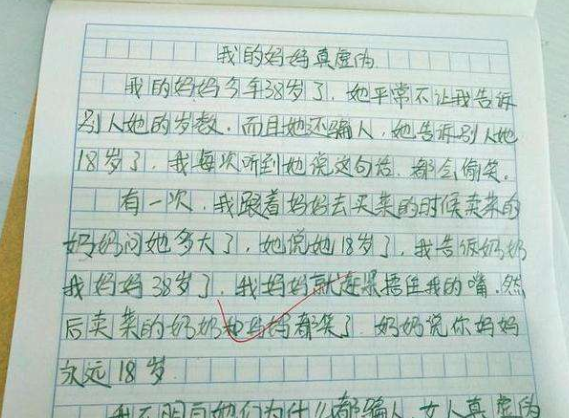 我的妈妈真虚伪
我的妈妈今年38岁了，她平常不让我告诉
别人她的岁数，而且她还骗人，她告诉别人她
18岁了，我每次听到她说这句话，都会偷笑。
有一次，我跟着妈妈去买菜的时候卖菜的
奶奶问她多大了，她说她18岁了，我告诉奶奶
我妈妈38岁了，我妈妈就赶紧捂住我的嘴，然
后卖菜的奶奶和妈妈都笑了，奶奶说你妈妈
永远18岁
我不明白她们为什么都骗人，女人真虚伪